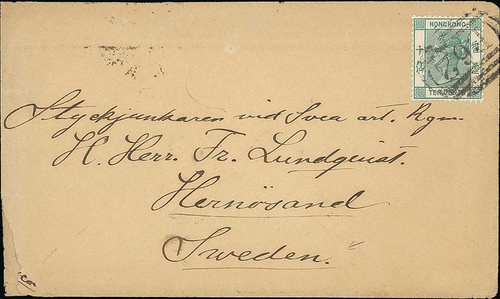 HONGKONG
Styckjunkaren vid Svea art. Rgm.
H. Herr. Fr. Lundquist.
Hernösand
Sweden.